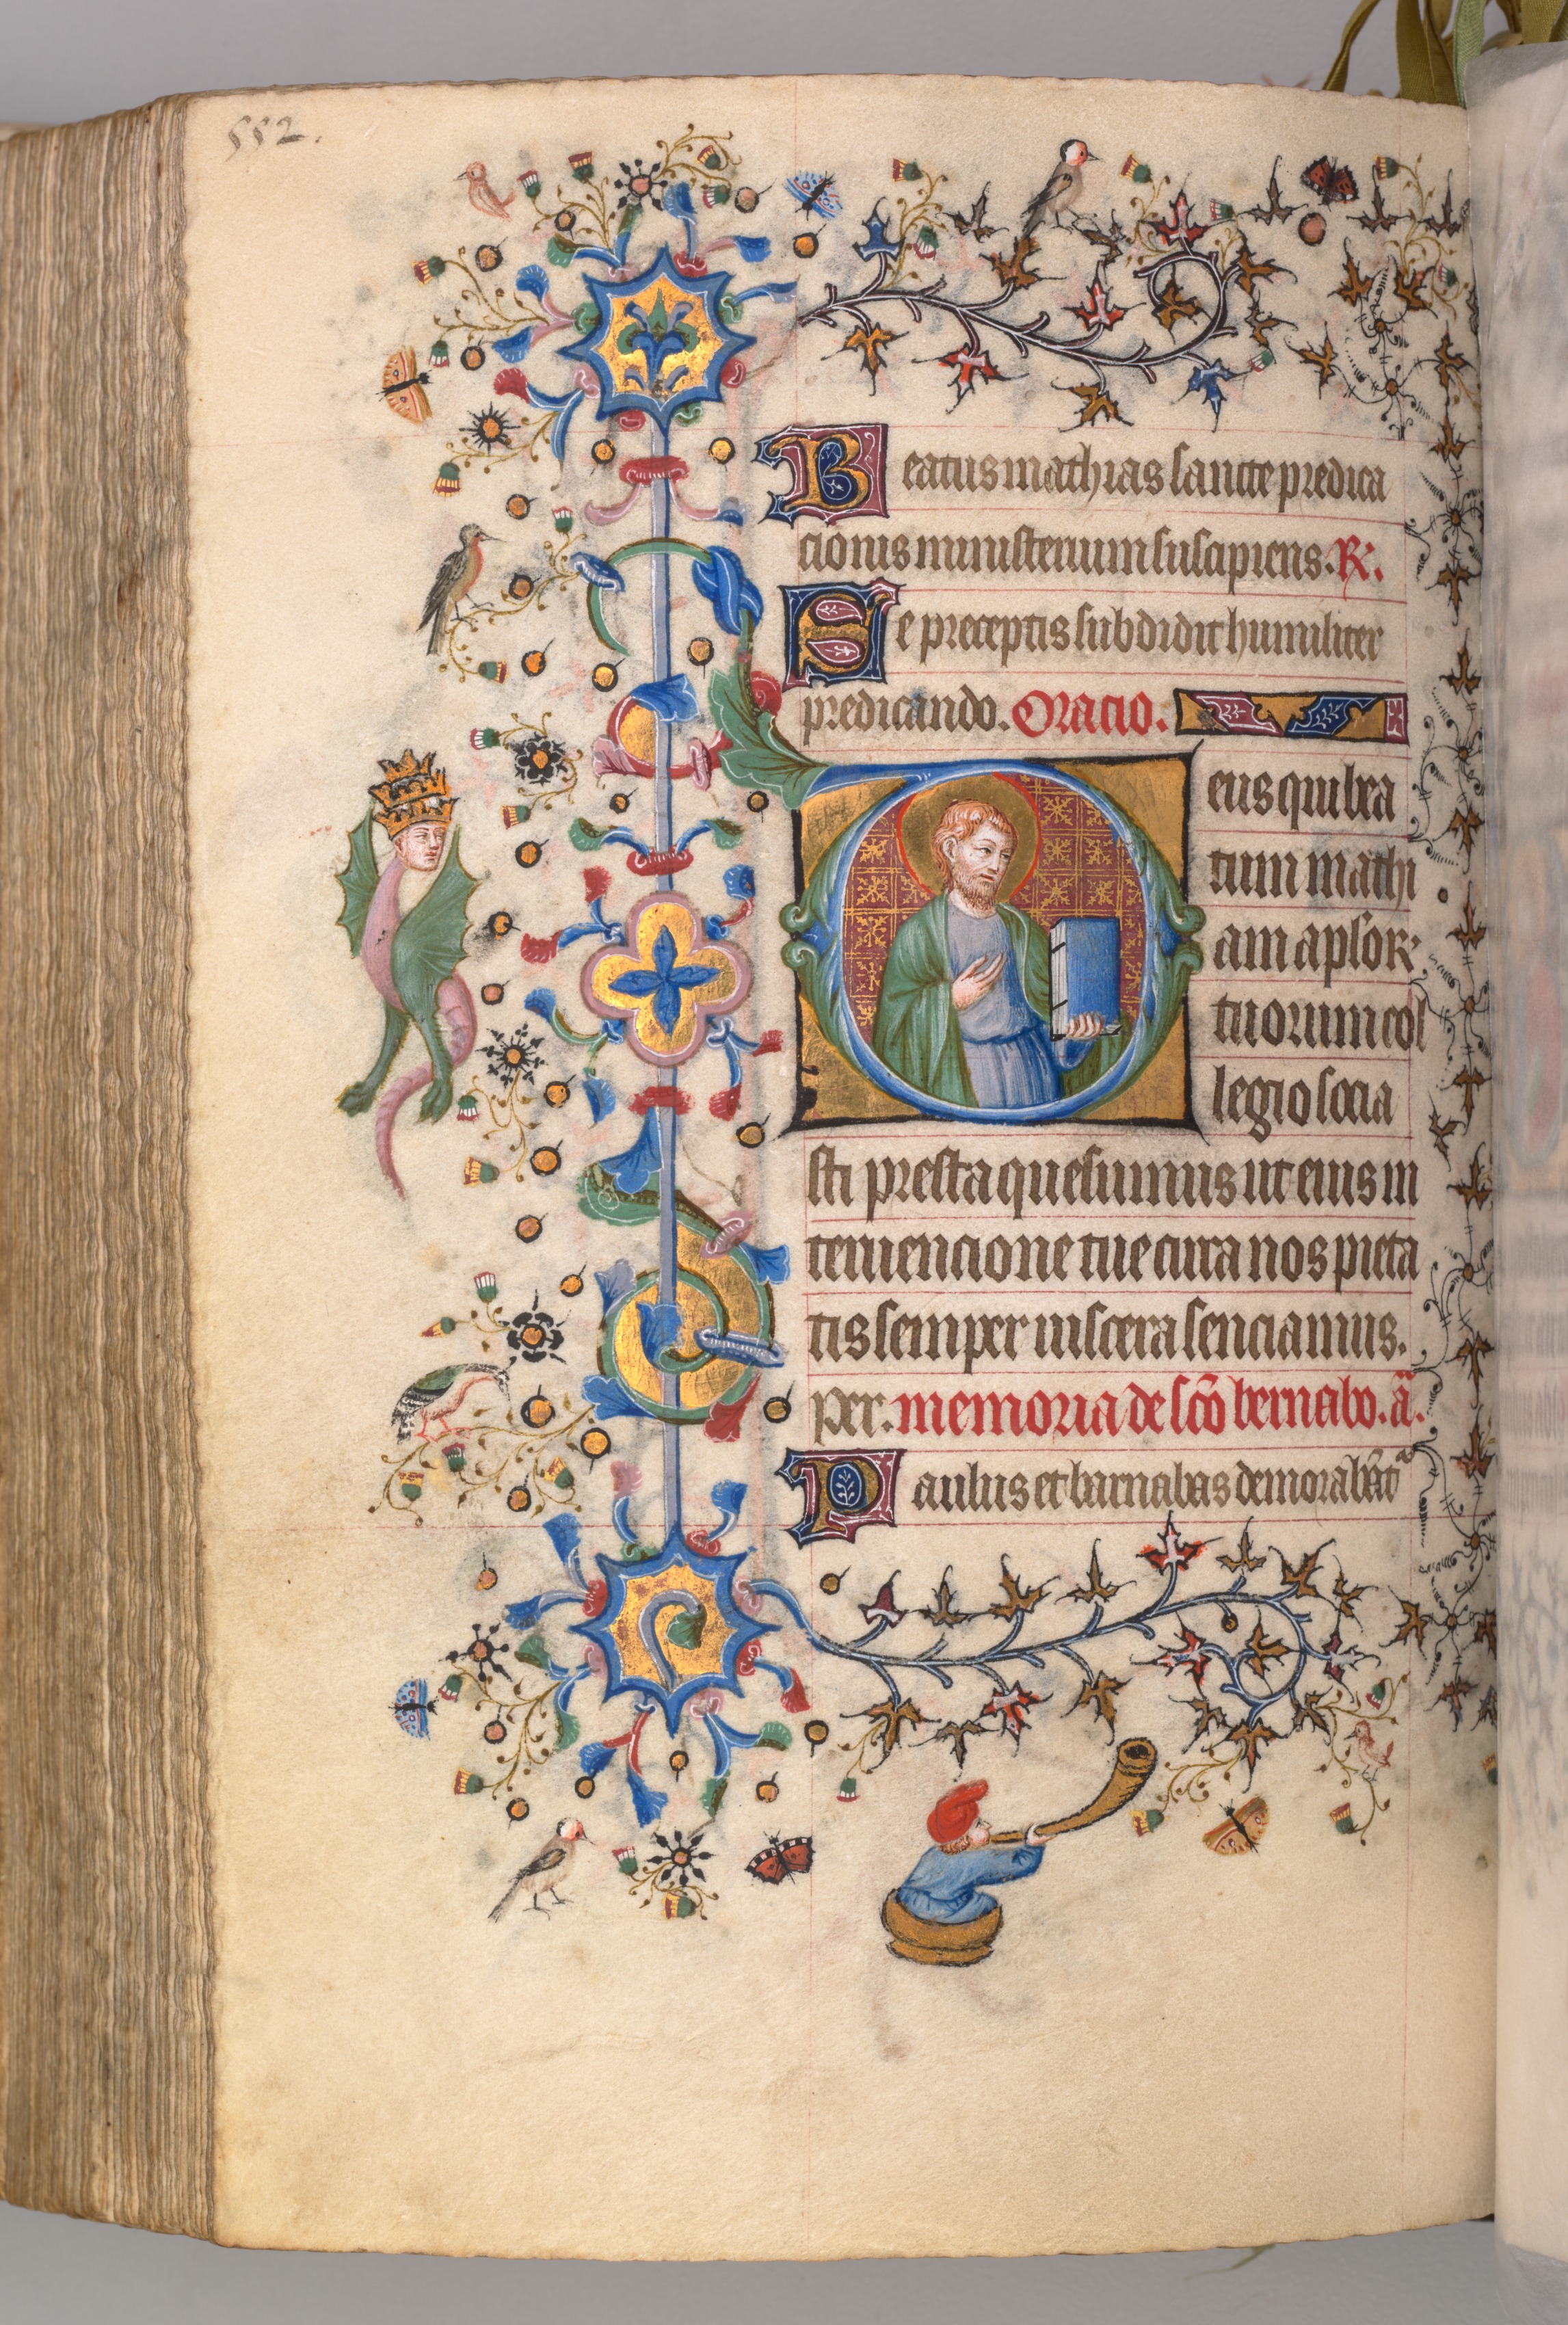 552.
Beatus mathias sancte predica
cionis ministerium suscipiens. R.
Se preceptis subdidit humiliter
predicando. Oracio.
Deus qui bea
tum mathi
am aplor
tuorum col
legio socia
sti presta quesumus ut eius in
tervencione tue circa nos pieta
tis semper viscera senciamus.
per. memoria de sco bernabo. a.
Paulus et barnabas demorabant